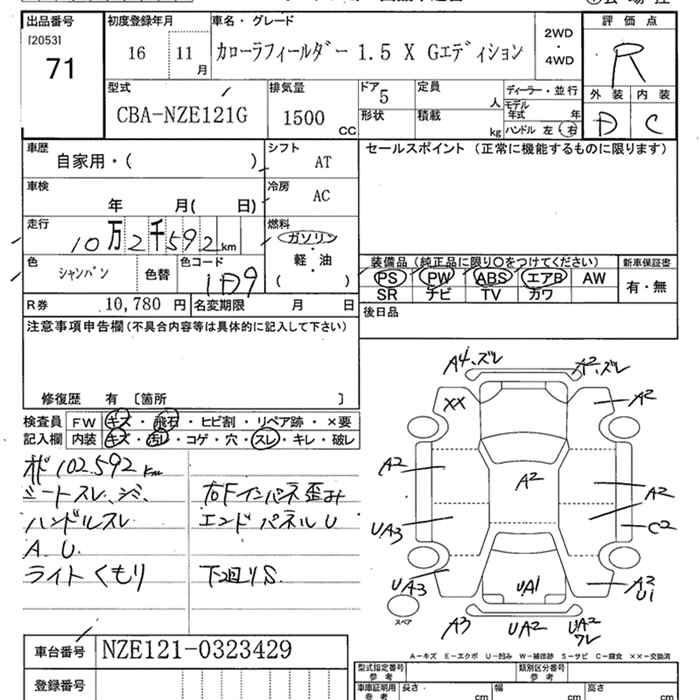 出品番号
[2053]
71
初度登録年月
16 11 月
車名・グレード
カローラフィールダー 1.5 X Gエディション
2WD
・
4WD
評価点
R
外装 内装
D C
型式
CBA-NZE121G
排気量
1500 CC
ドア 5
形状
定員 人
積載 kg
ディーラー・並行
モデル年式 年
ハンドル 左・右
車歴
自家用・( )
シフト
AT
セールスポイント (正常に機能するものに限ります)
車検
年 月( 日)
冷房
AC
走行
10万2千592km
燃料
ガソリン
・
軽・油
( )
色
シャンパン
色替
色コード
1D9
R券 10,780 円
名変期限 月 日
装備品 (純正品に限り○をつけてください)
PS PW ABS エアB AW
SR ナビ TV カワ
新車保証書
有・無
後日品
注意事項申告欄 (不具合内容等は具体的に記入して下さい)
修復歴 有 〔箇所 〕
検査員記入欄
FW キズ・飛石・ヒビ割・リペア跡・×要
内装 キズ・汚れ・コゲ・穴・スレ・キレ・破レ
102,592 km
シートスレ、シミ
ハンドルスレ
A.U.
ライトくもり
右Fインパネ歪み
エンドパネルU
下回りS
A4、ズレ
A2、ズレ
XX
A2
A2
A2
A2
UA3
C2
UA3
UA1
A2
U1
A3
UA2
UA2
ワレ
スペア
A－キズ E－エクボ U－凹み W－補修跡 S－サビ C－腐食 ××－交換済
車台番号
NZE121-0323429
登録番号
型式指定番号
参考
類別区分番号
参考
車庫証明用
参考
長さ cm
幅 cm
高さ cm